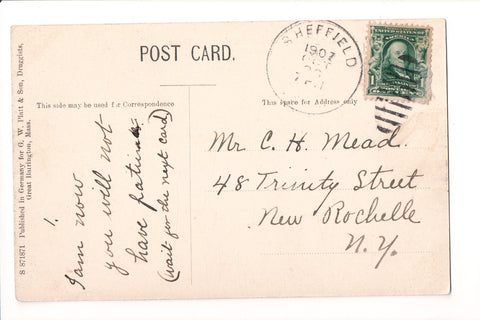 POST CARD.
SHEFFIELD
1907
This side may be used for Correspondence
This space for Address only
I am now
you will not
have
(wait for the next card)
Mr. C. H. Mead.
48 Trinity Street
New Rochelle
N.Y.
S 871871 Published in Germany for G. W. Platt & Son, Druggists,
Great Barrington, Mass.